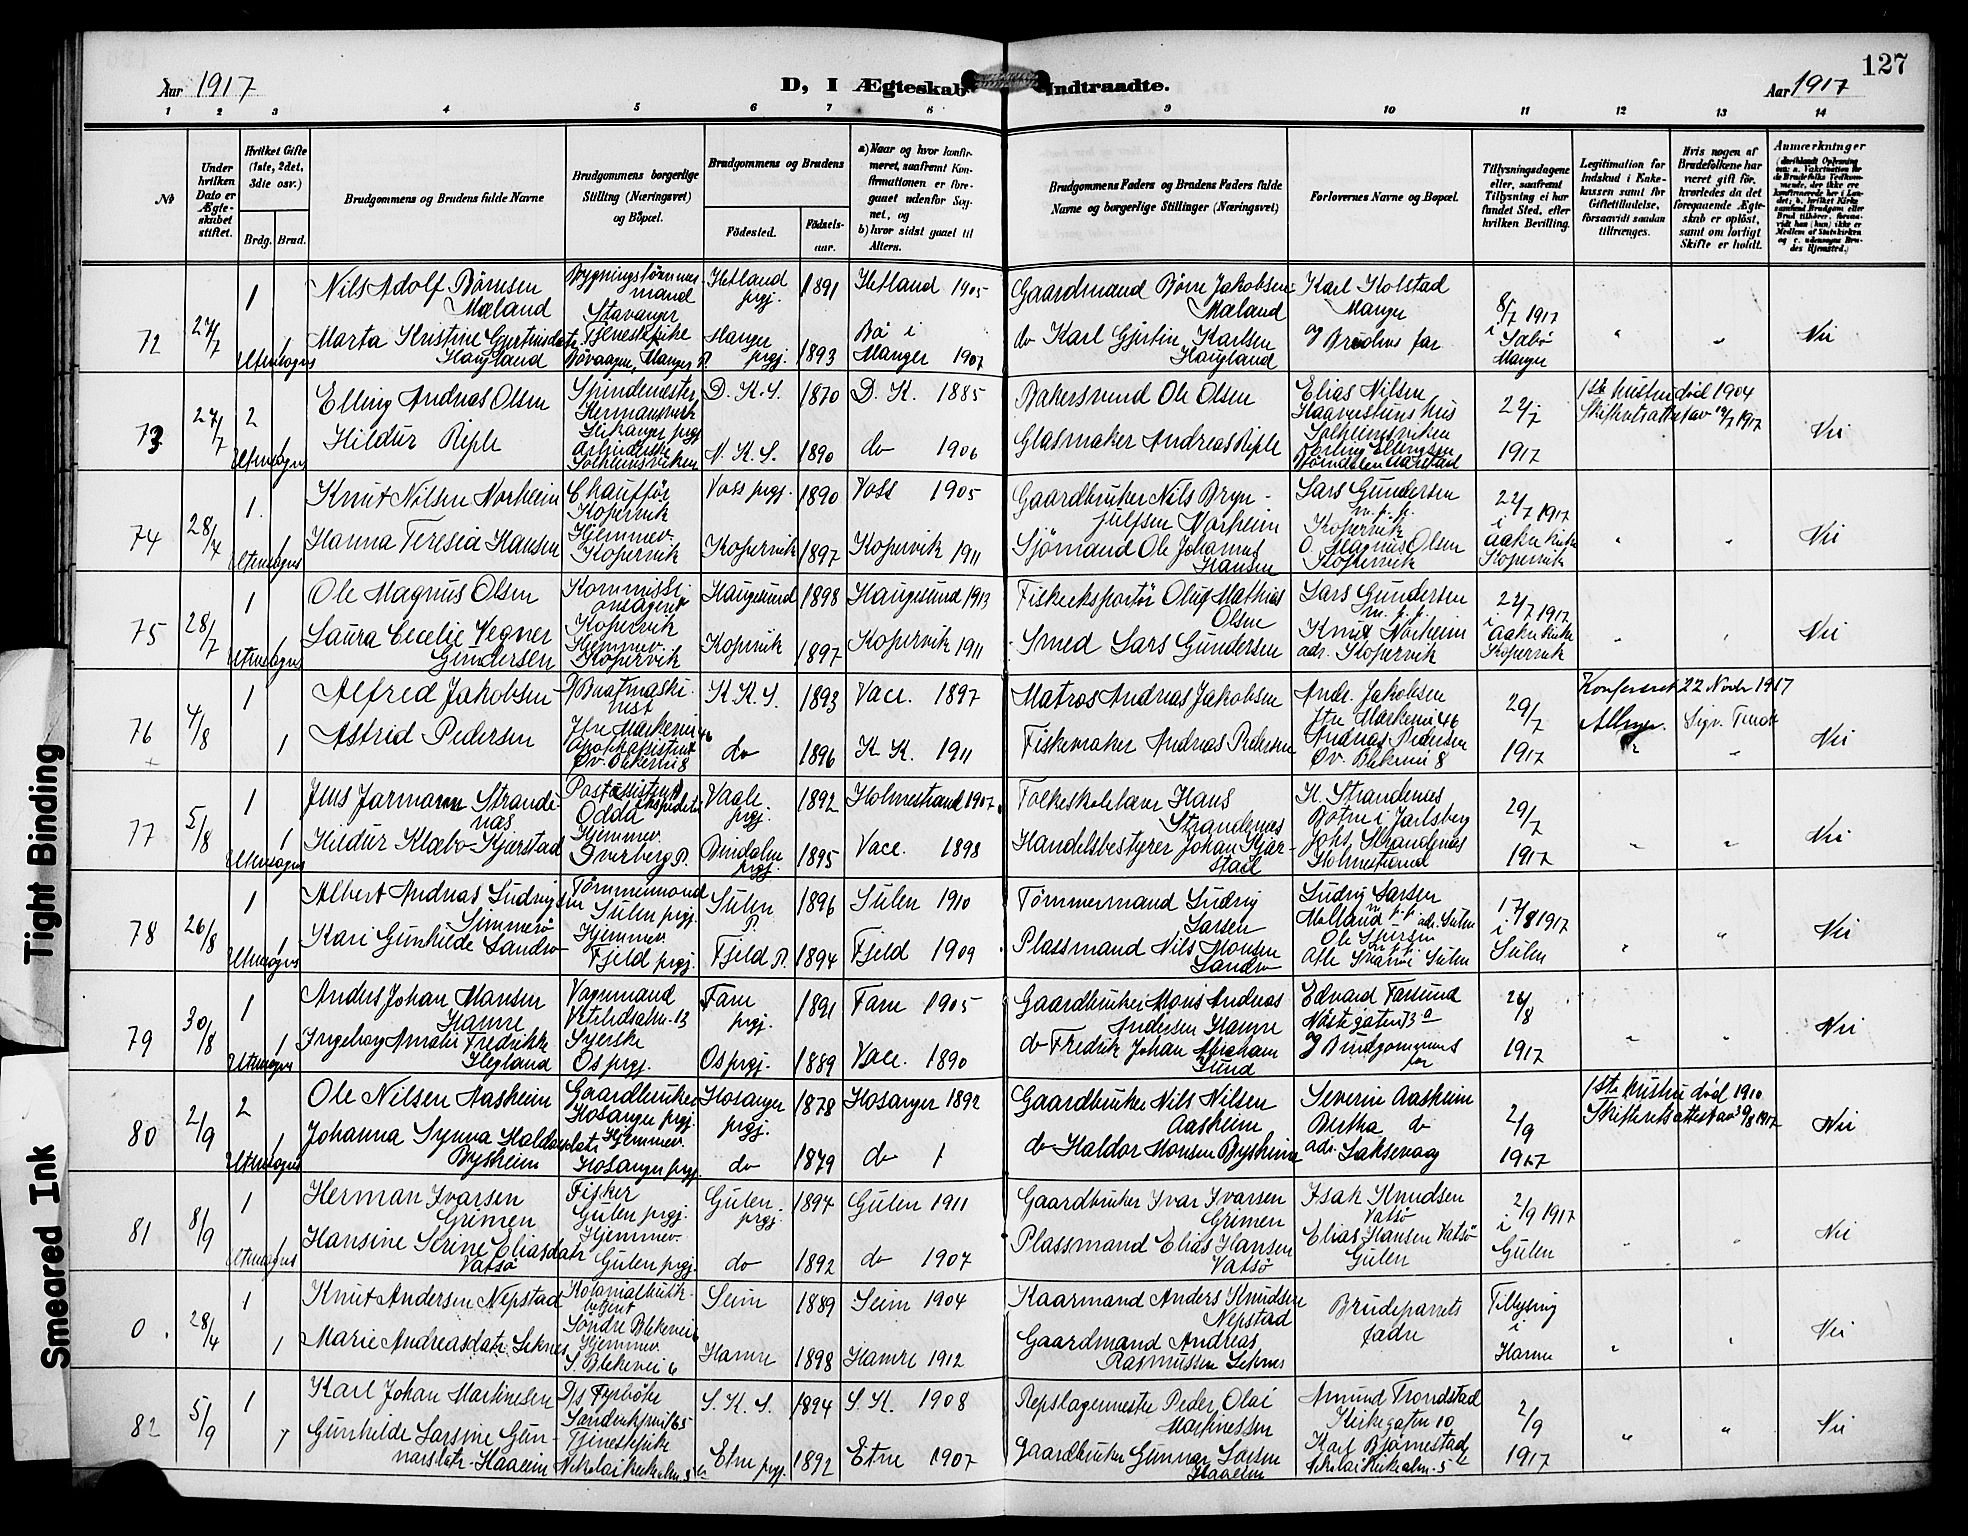 127
Aar 1917
D, I Ægteskab Indtraadte.
Aar 1917
1 2 3 4 5 6 7 8 9 10 11 12 13 14
№
Under hvilken Dato er Ægteskabet stiftet.
Hvilket Gifte (1ste, 2det, 3die osv.)
Brdg. Brud.
Brudgommens og Brudens fulde Navne
Brudgommens borgerlige Stilling (Næringsvei) og Bopæl.
Brudgommens og Brudens
Fødested. Fødselsaar.
a) Naar og hvor konfirmeret, saafremt Konfirmationen er foregaaet udenfor Sognet, og
b) hvor sidst gaaet til Alters.
Brudgommens Faders og Brudens Faders fulde Navne og borgerlige Stillinger (Næringsvei)
Forlovernes Navne og Bopæl.
Tillysningsdagene eller, saafremt Tillysning ei har fundet Sted, efter hvilken Bevilling.
Legitimation for Indskud i Enkekassen samt for Giftetilladelse, forsaavidt saadan tiltrænges.
Hvis nogen af Brudefolkene har været gift før, hvorledes da det foregaaende Ægteskab er opløst, samt om lovligt Skifte er holdt.
Anmærkninger
72 27/7 1 Nils Adolf Børnesen Mæland
Stavanger
Hetland prgj. 1891 Hetland 1905
Gaardmand Børre Jakobsen Mæland
Karl Holstad Manger
8/7 1917 i Sæbø Manger
Marta Kristine Gjertinsdatr. Haugland
Tjenestepike Bøvaagen, Manger P.
Manger prgj. 1893 Bø i Manger 1907
do Karl Gjertin Karlsen Haugland
og Brudens far
" " Nei
73 27/7 2 Elling Andreas Olsen
D. K. S. 1870 D. K. 1885
Bakersvend Ole Olsen
Elias Nilsen
22/7 1917
1ste hustru død 1904
Skifteretsattest av 14/7 1917
Nei
Utensogns 1 Hildur Riple
Solheimsviken
N. K. S. 1890 do 1906
Glasmaker Andreas Riple
Solheimsviken
74 28/7 1 Knut Nilsen Norheim
Chauffør Kopervik
Voss prgj. 1890 Voss 1905
Gaardbruker Nils Brynjulfsen Norheim
Lars Gundersen m. p. p. Kopervik
22/7 1917 i Aakre kirke Kopervik
Utensogns 1 Hanna Teresia Hansen
Hjemmev. Kopervik
Kopervik 1897 Kopervik 1911
Sjømand Ole Johannes Hansen
O. Magnus Olsen Kopervik
" " Nei
75 28/7 1 Ole Magnus Olsen
Kommissionsagent Kopervik
Haugesund 1898 Haugesund 1913
Fiskeeksportør Oluf Mathias Olsen
Lars Gundersen m. p. p.
22/7 1917 i Aakre kirke Kopervik
Utensogns 1 Laura Cecelie Vegner Gundersen
Hjemmev. Kopervik
Kopervik 1897 Kopervik 1911
Smed Lars Gundersen
Knut Norheim adr. Kopervik
" " Nei
76 4/8 1 Alfred Jakobsen
K. K. S. 1893 Vacc. 1897
Matros Andreas Jakobsen
Andr. Jakobsen
29/7 1917
Konfereret 22 Novbr 1917
Sigv. Tvedt
1 Astrid Pedersen
Øv. Blekevei 8
do 1896 K. K. 1911
Fiskemaker Andreas Pedersen
Andreas Pedersen Øv. Blekevei 8
" Nei
77 5/8 1 Jens Jarmann Strandenæs
Postassistent Odda
Vaale prgj. 1892 Holmestrand 1907
Folkeskolelærer Hans Strandenæs
H. Strandenæs Botne i Jarlsberg
29/7 1917
Utensogns 1 Hildur Klæbo-Kjærstad
Hjemmev.
Bindalen prgj. 1895 Vacc. 1898
Handelsbestyrer Johan Kjærstad
Johs. Strandenæs Holmestrand
" " Nei
78 26/8 1 Albert Andreas Ludvigsen Simmesø
Tømmermand Sulen prgj.
Sulen P. 1896 Sulen 1910
Tømmermand Ludvig Larsen
Ludvig Larsen
17/8 1917 i Sulen
Utensogns 1 Kari Gunhilde Landro
Hjemmev. Fjeld prgj.
Fjeld P. 1894 Fjeld 1909
Plassmand Nils Monsen Landro
" " Nei
79 30/8 1 Anders Johan Monsen Hamre
Vognmand Vetrlidsalm. 13
Fane prgj. 1891 Fane 1905
Gaardbruker Mons Andreas Andersen Hamre
Edvard Farsund Nøstegaten 73 a
26/8 1917
Utensogns 1 Ingeborg Amalie Fredrikke Hegland
Syerske Os prgj.
Os prgj. 1889 Vacc. 1890
do Fredrik Johan Abraham Lund
og Brudgommens far
" " Nei
80 2/9 2 Ole Nilsen Aasheim
Gaardbruker Hosanger prgj.
Hosanger prgj. 1878 Hosanger 1892
Gaardbruker Nils Nilsen Aasheim
Severin Aasheim
2/9 1917
1ste hustru død 1910
Skifteretsattest av 30/8 1917
Nei
Utensogns 1 Johanna Synna Haldorsdatr. Bysheim
Hjemmev. Hosanger prgj.
do 1879 do 1
do Haldor Monsen Bysheim
Bertha do adr. Laksevaag
81 8/9 1 Herman Ivarsen Grimen
Fisker Gulen prgj.
Gulen prgj. 1894 Gulen 1911
Gaardbruker Ivar Ivarsen Grimen
Isak Knudsen Vatsø
2/9 1917 i Gulen
Utensogns 1 Hansine Serine Eliasdatr. Vatsø
Hjemmev. Gulen prgj.
do 1892 do 1907
Plassmand Elias Hansen Vatsø
Elias Hansen Vatsø Gulen
" " Nei
0 28/4 1 Knut Andersen Nepstad
Søndre Blekevei
Seim 1889 Seim 1904
Kaarmand Anders Knudsen Nepstad
Brudeparrets fædre
Tillysning i Hamre
1 Marie Andreasdatr. Seknes
Hjemmev. S. Blekevei 6
Hamre 1898 Hamre 1912
Gaardmand Andreas Rasmussen Seknes
" " Nei
82 5/9 1 Karl Johan Martinesen
D/s Fyrbøte
S. K. S. 1894 S. K. 1908
Repslagermester Peder Olai Martinessen
Amund Trondstad Kirkegaten 10
2/9 1917
1 Gunhilde Larsine Gunnarsdatr. Haaeim
Tjenestepike Nikolaikirkealm. 5
Etne prgj. 1892 Etne 1907
Gaardbruker Gunnar Larsen Haaeim
Karl Bjørnestad Nikolaikirkealm. 5
" " Nei
Tight Binding
Smeared Ink